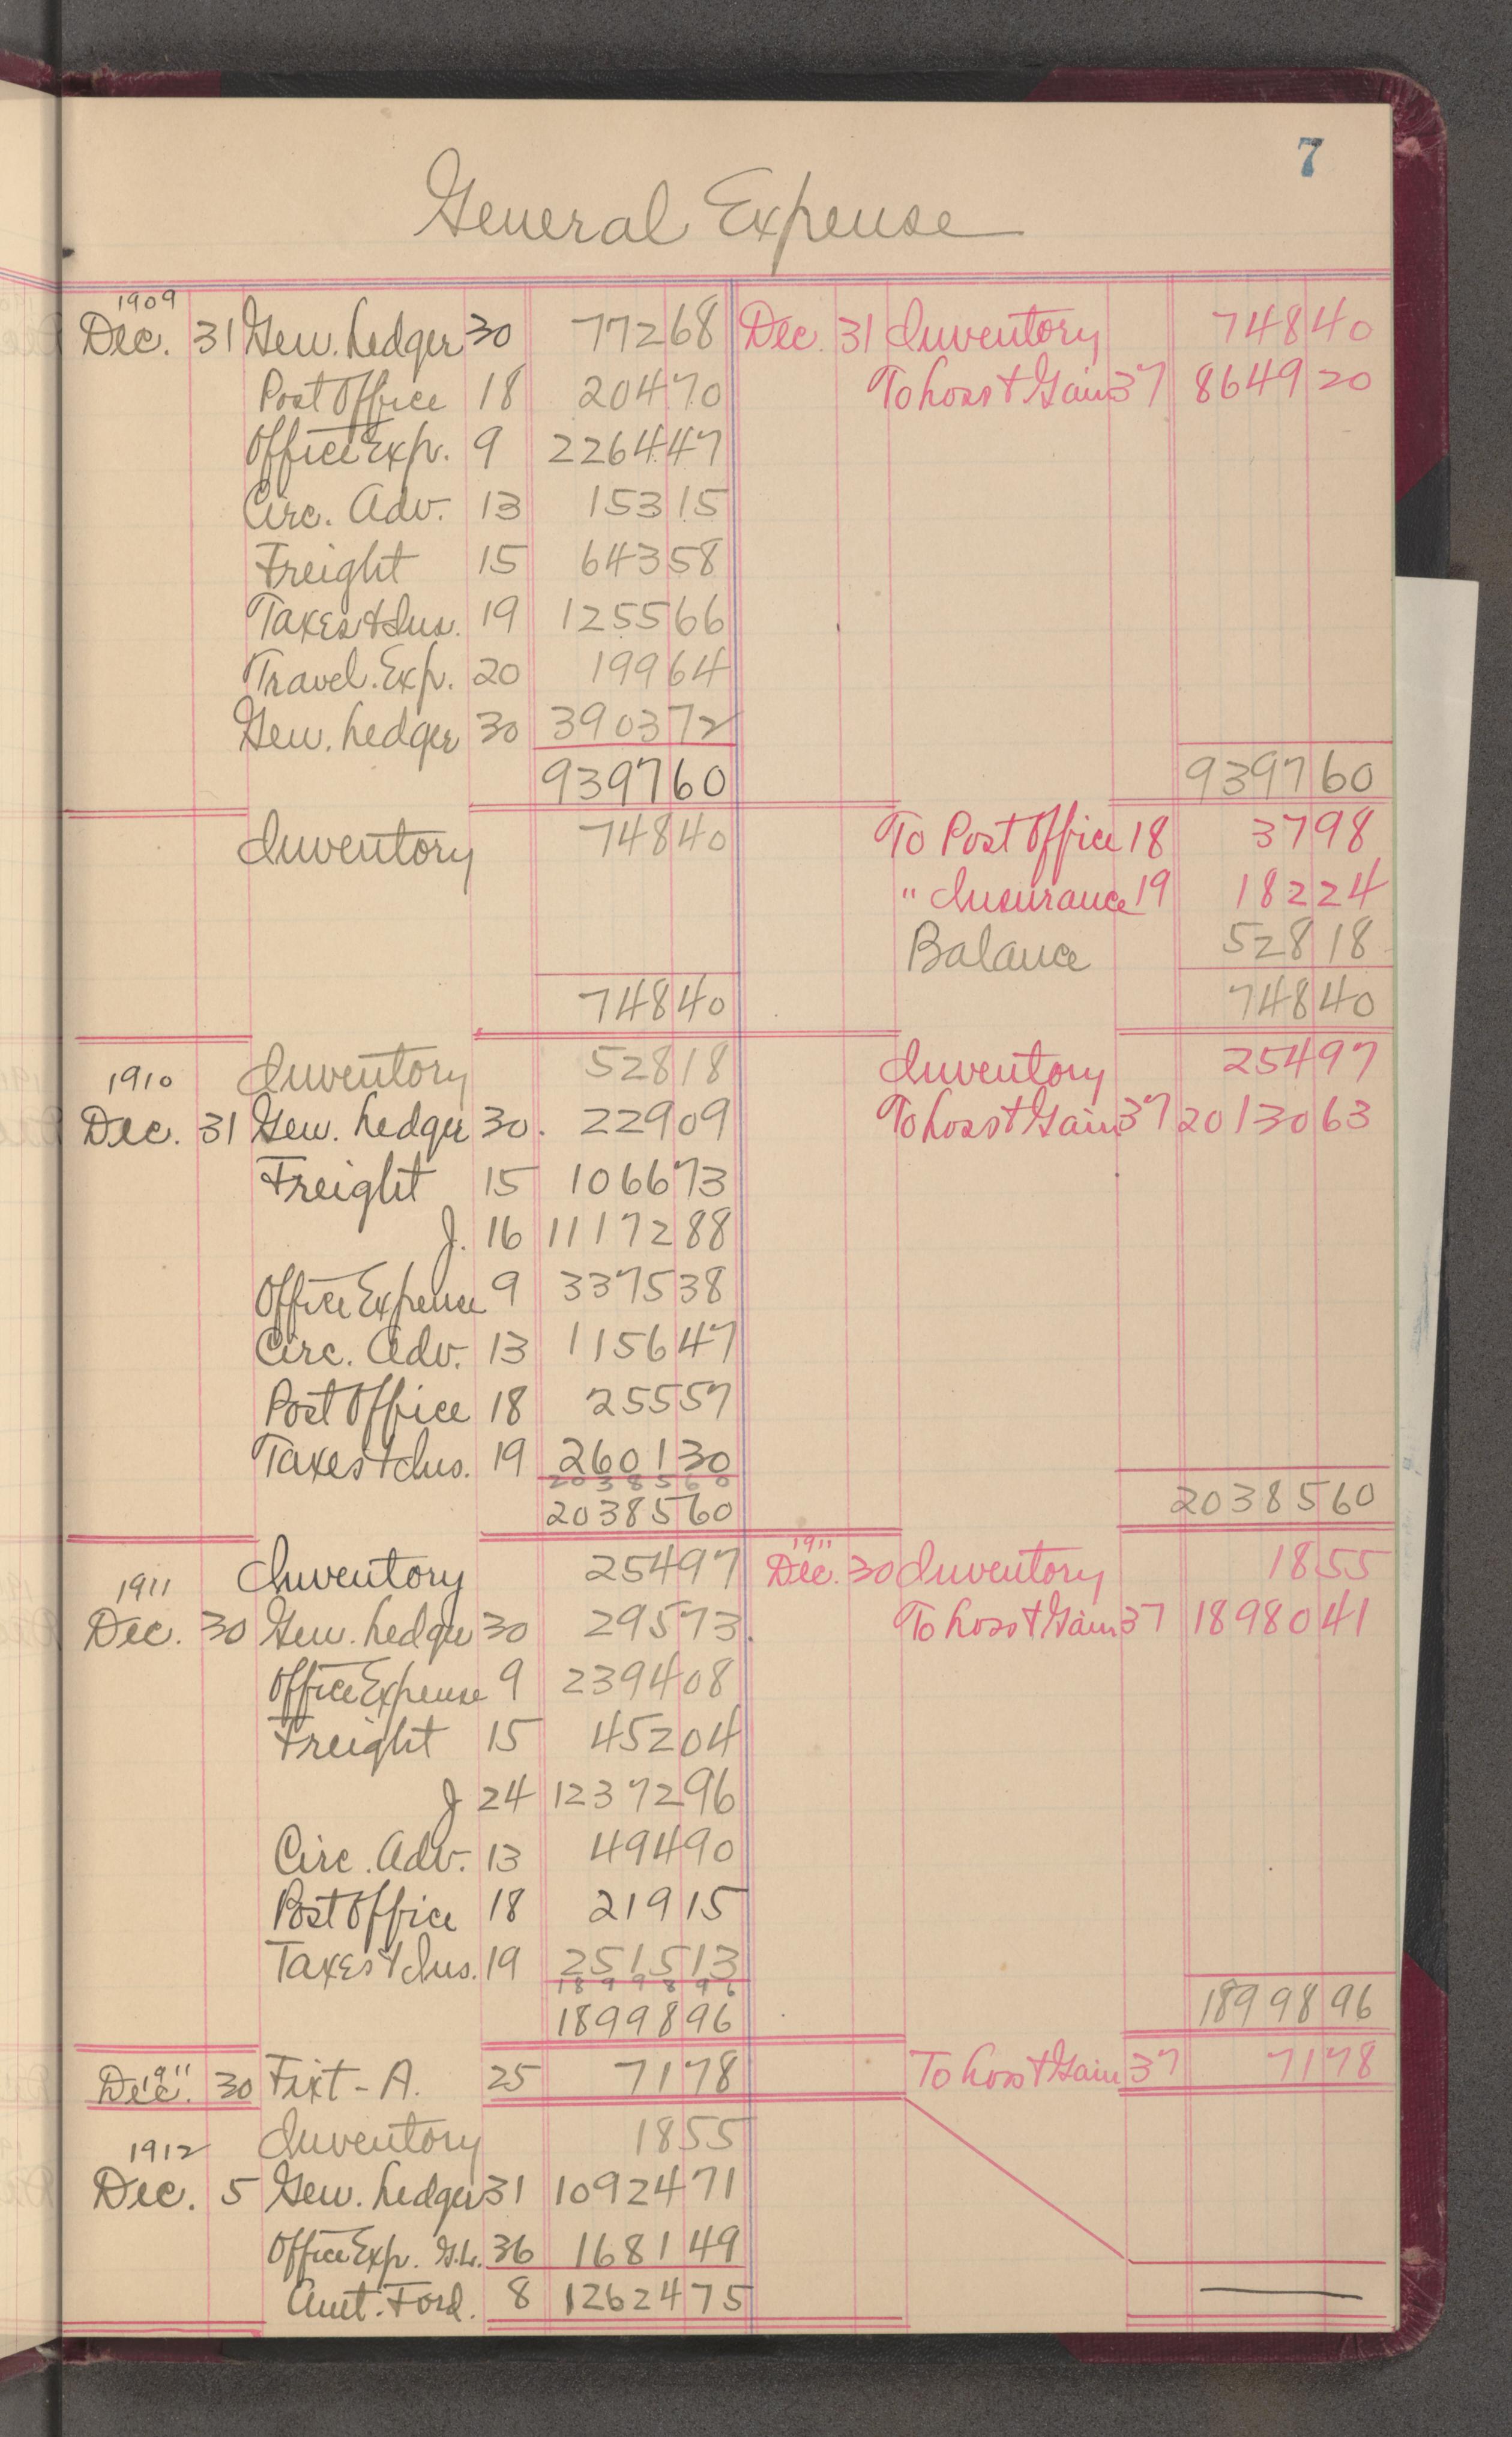 7
General Expense
1909
Dec. 31 Gen. Ledger 30 772 68 Dec. 31 Inventory 748 40
Post Office 18 204 70 To Loss & Gain 37 8649 20
Office Exp. 9 2264 47
Circ. Adv. 13 153 15
Freight 15 643 58
Taxes & Ins. 19 1255 66
Travel. Exp. 20 199 64
Gen. Ledger 30 3903 72
9397 60 9397 60
Inventory 748 40 To Post Office 18 37 98
" Insurance 19 182 24
Balance 528 18
748 40 748 40
1910 Inventory 528 18 Inventory 254 97
Dec. 31 Gen. Ledger 30. 229 09 To Loss & Gain 37 20130 63
Freight 15 1066 73
J. 16 11172 88
Office Expense 9 3375 38
Circ. Adv. 13 1156 47
Post Office 18 255 57
Taxes & Ins. 19 2601 30
20385 60
20385 60 20385 60
1911 Inventory 254 97 1911 Dec. 30 Inventory 18 55
Dec. 30 Gen. Ledger 30 295 73 To Loss & Gain 37 18980 41
Office Expense 9 2394 08
Freight 15 452 04
J 24 12372 96
Circ. Adv. 13 494 90
Post Office 18 219 15
Taxes & Ins. 19 2515 13
18998 96
18998 96 18998 96
1911
Dec. 30 Fixt-A. 25 71 78 To Loss & Gain 37 71 78
1912 Inventory 18 55
Dec. 5 Gen. Ledger 31 10924 71
Office Exp. G.L. 36 1681 49
Amt. Ford. 8 12624 75